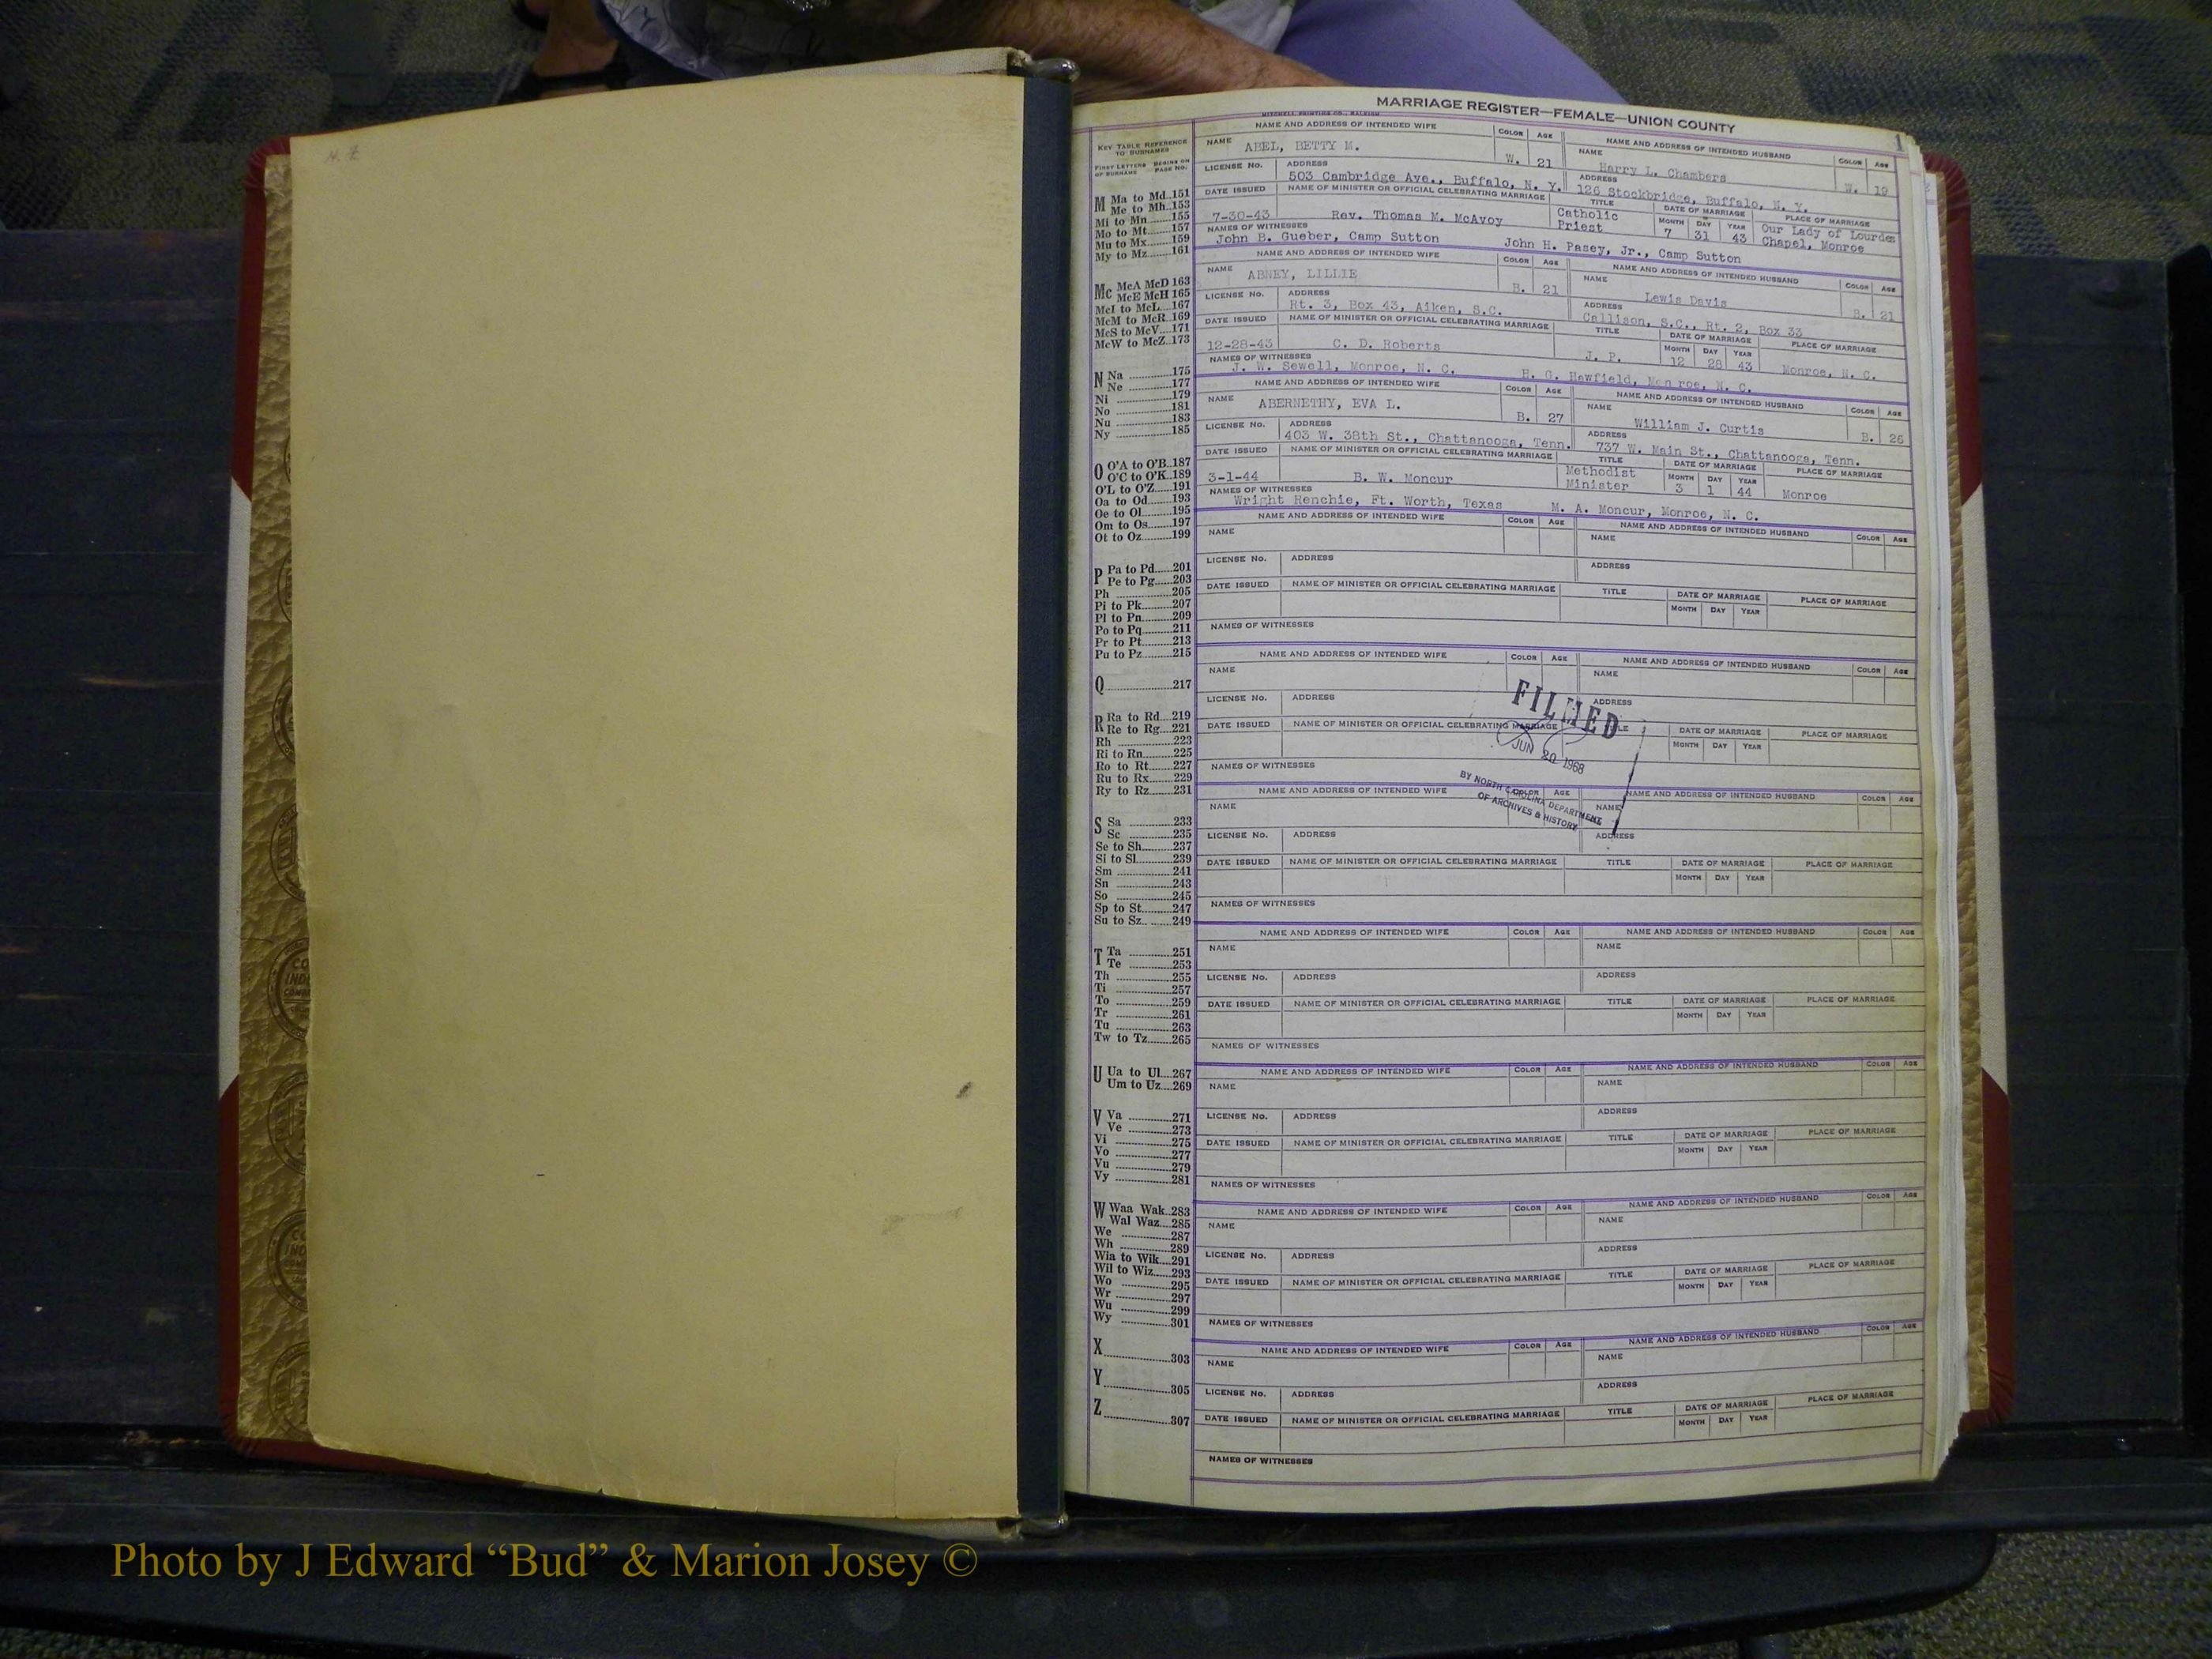 M. Z
MARRIAGE REGISTER—FEMALE—UNION COUNTY
1
MITCHELL PRINTING CO., RALEIGH
KEY TABLE REFERENCE
TO SURNAMES
FIRST LETTERS OF SURNAME BEGINS ON PAGE NO.
M Ma to Md..151
Me to Mh..153
Mi to Mn......155
Mo to Mt......157
Mu to Mx......159
My to Mz......161
Mc McA McD 163
McE McH 165
McI to McL....167
McM to McR..169
McS to McV....171
McW to McZ..173
N Na ..............175
Ne ..............177
Ni ..............179
No ..............181
Nu ..............183
Ny ..............185
O O'A to O'B..187
O'C to O'K..189
O'L to O'Z.....191
Oa to Od.......193
Oe to Ol........195
Om to Os.......197
Ot to Oz.........199
P Pa to Pd.....201
Pe to Pg.....203
Ph ..............205
Pi to Pk........207
Pl to Pn........209
Po to Pq........211
Pr to Pt.........213
Pu to Pz........215
Q ..............217
R Ra to Rd...219
Re to Rg....221
Rh ..............223
Ri to Rn.......225
Ro to Rt.......227
Ru to Rx.......229
Ry to Rz.......231
S Sa ..............233
Sc ..............235
Se to Sh........237
Si to Sl.........239
Sm ..............241
Sn ..............243
So ..............245
Sp to St........247
Su to Sz........249
T Ta ..............251
Te ..............253
Th ..............255
Ti ..............257
To ..............259
Tr ..............261
Tu ..............263
Tw to Tz.......265
U Ua to Ul....267
Um to Uz...269
V Va ..............271
Ve ..............273
Vi ..............275
Vo ..............277
Vu ..............279
Vy ..............281
W Waa Wak..283
Wal Waz...285
We ..............287
Wh ..............289
Wia to Wik...291
Wil to Wiz....293
Wo ..............295
Wr ..............297
Wu ..............299
Wy ..............301
X ..............303
Y ..............305
Z ..............307
NAME AND ADDRESS OF INTENDED WIFE COLOR AGE NAME AND ADDRESS OF INTENDED HUSBAND COLOR AGE
NAME ABEL, BETTY M. W. 21 NAME Harry L. Chambers W. 19
LICENSE No. ADDRESS 503 Cambridge Ave., Buffalo, N. Y. ADDRESS 126 Stockbridge, Buffalo, N. Y.
DATE ISSUED NAME OF MINISTER OR OFFICIAL CELEBRATING MARRIAGE TITLE DATE OF MARRIAGE PLACE OF MARRIAGE
MONTH DAY YEAR
7-30-43 Rev. Thomas M. McAvoy Catholic Priest 7 31 43 Our Lady of Lourdes Chapel, Monroe
NAMES OF WITNESSES
John B. Gueber, Camp Sutton John H. Pasey, Jr., Camp Sutton
NAME AND ADDRESS OF INTENDED WIFE COLOR AGE NAME AND ADDRESS OF INTENDED HUSBAND COLOR AGE
NAME ABNEY, LILLIE B. 21 NAME Lewis Davis B. 21
LICENSE No. ADDRESS Rt. 3, Box 43, Aiken, S.C. ADDRESS Callison, S.C., Rt. 2, Box 33
DATE ISSUED NAME OF MINISTER OR OFFICIAL CELEBRATING MARRIAGE TITLE DATE OF MARRIAGE PLACE OF MARRIAGE
MONTH DAY YEAR
12-28-43 C. D. Roberts J. P. 12 28 43 Monroe, N. C.
NAMES OF WITNESSES
J. W. Sewell, Monroe, N. C. H. G. Hawfield, Mon roe, N. C.
NAME AND ADDRESS OF INTENDED WIFE COLOR AGE NAME AND ADDRESS OF INTENDED HUSBAND COLOR AGE
NAME ABERNETHY, EVA L. B. 27 NAME William J. Curtis B. 26
LICENSE No. ADDRESS 403 W. 38th St., Chattanooga, Tenn. ADDRESS 737 W. Main St., Chattanooga, Tenn.
DATE ISSUED NAME OF MINISTER OR OFFICIAL CELEBRATING MARRIAGE TITLE DATE OF MARRIAGE PLACE OF MARRIAGE
MONTH DAY YEAR
3-1-44 B. W. Moncur Methodist Minister 3 1 44 Monroe
NAMES OF WITNESSES
Wright Renchie, Ft. Worth, Texas M. A. Moncur, Monroe, N. C.
NAME AND ADDRESS OF INTENDED WIFE COLOR AGE NAME AND ADDRESS OF INTENDED HUSBAND COLOR AGE
NAME NAME
LICENSE No. ADDRESS ADDRESS
DATE ISSUED NAME OF MINISTER OR OFFICIAL CELEBRATING MARRIAGE TITLE DATE OF MARRIAGE PLACE OF MARRIAGE
MONTH DAY YEAR
NAMES OF WITNESSES
NAME AND ADDRESS OF INTENDED WIFE COLOR AGE NAME AND ADDRESS OF INTENDED HUSBAND COLOR AGE
NAME NAME
LICENSE No. ADDRESS ADDRESS
DATE ISSUED NAME OF MINISTER OR OFFICIAL CELEBRATING MARRIAGE TITLE DATE OF MARRIAGE PLACE OF MARRIAGE
MONTH DAY YEAR
NAMES OF WITNESSES
FILMED
JUN 20 1968
BY NORTH CAROLINA DEPARTMENT
OF ARCHIVES & HISTORY
NAME AND ADDRESS OF INTENDED WIFE COLOR AGE NAME AND ADDRESS OF INTENDED HUSBAND COLOR AGE
NAME NAME
LICENSE No. ADDRESS ADDRESS
DATE ISSUED NAME OF MINISTER OR OFFICIAL CELEBRATING MARRIAGE TITLE DATE OF MARRIAGE PLACE OF MARRIAGE
MONTH DAY YEAR
NAMES OF WITNESSES
NAME AND ADDRESS OF INTENDED WIFE COLOR AGE NAME AND ADDRESS OF INTENDED HUSBAND COLOR AGE
NAME NAME
LICENSE No. ADDRESS ADDRESS
DATE ISSUED NAME OF MINISTER OR OFFICIAL CELEBRATING MARRIAGE TITLE DATE OF MARRIAGE PLACE OF MARRIAGE
MONTH DAY YEAR
NAMES OF WITNESSES
NAME AND ADDRESS OF INTENDED WIFE COLOR AGE NAME AND ADDRESS OF INTENDED HUSBAND COLOR AGE
NAME NAME
LICENSE No. ADDRESS ADDRESS
DATE ISSUED NAME OF MINISTER OR OFFICIAL CELEBRATING MARRIAGE TITLE DATE OF MARRIAGE PLACE OF MARRIAGE
MONTH DAY YEAR
NAMES OF WITNESSES
NAME AND ADDRESS OF INTENDED WIFE COLOR AGE NAME AND ADDRESS OF INTENDED HUSBAND COLOR AGE
NAME NAME
LICENSE No. ADDRESS ADDRESS
DATE ISSUED NAME OF MINISTER OR OFFICIAL CELEBRATING MARRIAGE TITLE DATE OF MARRIAGE PLACE OF MARRIAGE
MONTH DAY YEAR
NAMES OF WITNESSES
NAME AND ADDRESS OF INTENDED WIFE COLOR AGE NAME AND ADDRESS OF INTENDED HUSBAND COLOR AGE
NAME NAME
LICENSE No. ADDRESS ADDRESS
DATE ISSUED NAME OF MINISTER OR OFFICIAL CELEBRATING MARRIAGE TITLE DATE OF MARRIAGE PLACE OF MARRIAGE
MONTH DAY YEAR
NAMES OF WITNESSES
Photo by J Edward “Bud” & Marion Josey ©